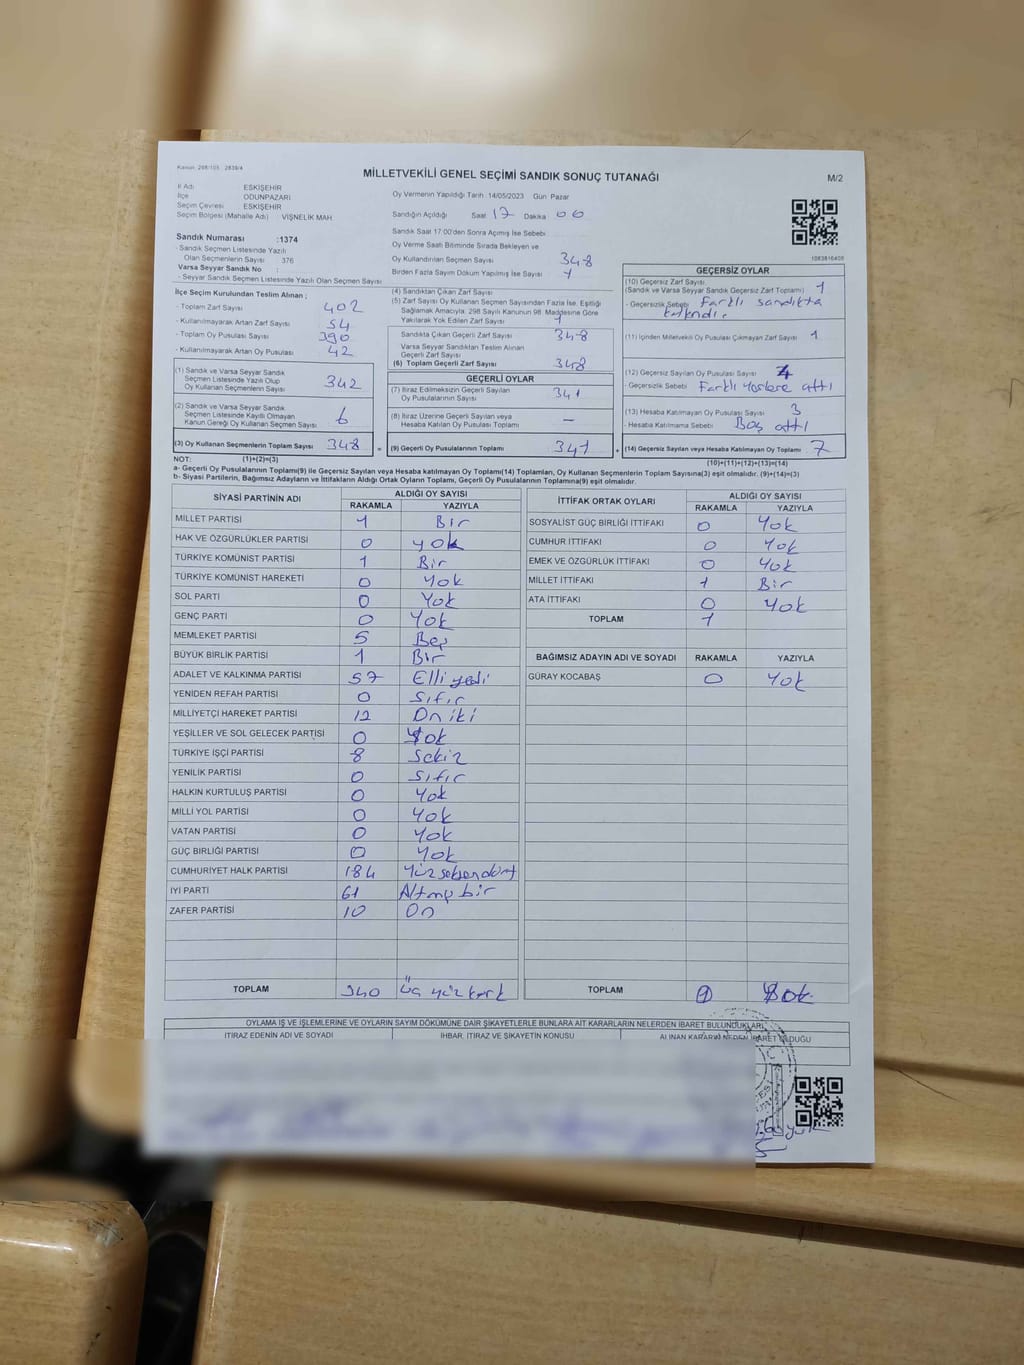 Kanun: 298/105 - 2839/4
MİLLETVEKİLİ GENEL SEÇİMİ SANDIK SONUÇ TUTANAĞI
M/2
İl Adı : ESKİŞEHİR
İlçe : ODUNPAZARI
Seçim Çevresi : ESKİŞEHİR
Seçim Bölgesi (Mahalle Adı) : VİŞNELİK MAH.
Oy Vermenin Yapıldığı Tarih : 14/05/2023 Gün: Pazar
Sandığın Açıldığı Saat 17 Dakika 00
Sandık Saat 17:00'den Sonra Açılmış İse Sebebi
Sandık Numarası :1374
- Sandık Seçmen Listesinde Yazılı
Olan Seçmenlerin Sayısı : 376
Varsa Seyyar Sandık No :
- Seyyar Sandık Seçmen Listesinde Yazılı Olan Seçmen Sayısı :
Oy Verme Saati Bitiminde Sırada Bekleyen ve
Oy Kullandırılan Seçmen Sayısı 348
Birden Fazla Sayım Döküm Yapılmış İse Sayısı 1
1083816408
İlçe Seçim Kurulundan Teslim Alınan ;
- Toplam Zarf Sayısı 402
- Kullanılmayarak Artan Zarf Sayısı 54
- Toplam Oy Pusulası Sayısı 390
- Kullanılmayarak Artan Oy Pusulası 42
(1) Sandık ve Varsa Seyyar Sandık
Seçmen Listesinde Yazılı Olup
Oy Kullanan Seçmenlerin Sayısı 342
(2) Sandık ve Varsa Seyyar Sandık
Seçmen Listesinde Kayıtlı Olmayan
Kanun Gereği Oy Kullanan Seçmen Sayısı 6
(3) Oy Kullanan Seçmenlerin Toplam Sayısı 348
(4) Sandıktan Çıkan Zarf Sayısı
(5) Zarf Sayısı Oy Kullanan Seçmen Sayısından Fazla İse, Eşitliği
Sağlamak Amacıyla, 298 Sayılı Kanunun 98. Maddesine Göre
Yakılarak Yok Edilen Zarf Sayısı 1
Sandıkta Çıkan Geçerli Zarf Sayısı 348
Varsa Seyyar Sandıktan Teslim Alınan
Geçerli Zarf Sayısı
(6) Toplam Geçerli Zarf Sayısı 348
GEÇERLİ OYLAR
(7) İtiraz Edilmeksizin Geçerli Sayılan
Oy Pusulaları Toplamı 341
(8) İtiraz Üzerine Geçerli Sayılan veya
Hesaba Katılan Oy Pusulası Toplamı —
= (9) Geçerli Oy Pusulalarının Toplamı 341
GEÇERSİZ OYLAR
(10) Geçersiz Zarf Sayısı
(Sandık ve Varsa Seyyar Sandık Geçersiz Zarf Toplamı) 1
- Geçersizlik Sebebi Farklı sandıkta
(11) İçinden Milletvekili Oy Pusulası Çıkmayan Zarf Sayısı 1
(12) Geçersiz Sayılan Oy Pusulası Sayısı
- Geçersizlik Sebebi Farklı yerlere attı
(13) Hesaba Katılmayan Oy Pusulası Sayısı 3
- Hesaba Katılmama Sebebi Boş attı
+ (14) Geçersiz Sayılan veya Hesaba Katılmayan Oy Toplamı 7
NOT: (1)+(2)=(3)
(10)+(11)+(12)+(13)=(14)
a- Geçerli Oy Pusulalarının Toplamı(9) ile Geçersiz Sayılan veya Hesaba katılmayan Oy Toplamı(14) Toplamları, Oy Kullanan Seçmenlerin Toplam Sayısına(3) eşit olmalıdır. (9)+(14)=(3)
b- Siyasi Partilerin, Bağımsız Adayların ve İttifakların Aldığı Ortak Oyların Toplamı, Geçerli Oy Pusulalarının Toplamına(9) eşit olmalıdır.
SİYASİ PARTİNİN ADI ALDIĞI OY SAYISI
RAKAMLA YAZIYLA
MİLLET PARTİSİ 1 Bir
HAK VE ÖZGÜRLÜKLER PARTİSİ 0 yok
TÜRKİYE KOMÜNİST PARTİSİ 1 Bir
TÜRKİYE KOMÜNİST HAREKETİ 0 Yok
SOL PARTİ 0 Yok
GENÇ PARTİ 0 Yok
MEMLEKET PARTİSİ 5 Beş
BÜYÜK BİRLİK PARTİSİ 1 Bir
ADALET VE KALKINMA PARTİSİ 57 Elli yedi
YENİDEN REFAH PARTİSİ 0 Sıfır
MİLLİYETÇİ HAREKET PARTİSİ 12 On iki
YEŞİLLER VE SOL GELECEK PARTİSİ 0 Yok
TÜRKİYE İŞÇİ PARTİSİ 8 Sekiz
YENİLİK PARTİSİ 0 Sıfır
HALKIN KURTULUŞ PARTİSİ 0 Yok
MİLLİ YOL PARTİSİ 0 Yok
VATAN PARTİSİ 0 Yok
GÜÇ BİRLİĞİ PARTİSİ 0 Yok
CUMHURİYET HALK PARTİSİ 184 Yüz seksen dört
İYİ PARTİ 61 Altmış bir
ZAFER PARTİSİ 10 On
TOPLAM 340 Üç yüz kırk
İTTİFAK ORTAK OYLARI ALDIĞI OY SAYISI
RAKAMLA YAZIYLA
SOSYALİST GÜÇ BİRLİĞİ İTTİFAKI 0 Yok
CUMHUR İTTİFAKI 0 Yok
EMEK VE ÖZGÜRLÜK İTTİFAKI 0 Yok
MİLLET İTTİFAKI 1 Bir
ATA İTTİFAKI 0 Yok
TOPLAM 1
BAĞIMSIZ ADAYIN ADI VE SOYADI RAKAMLA YAZIYLA
GÜRAY KOCABAŞ 0 Yok
TOPLAM Yok
OYLAMA İŞ VE İŞLEMLERİNE VE OYLARIN SAYIM DÖKÜMÜNE DAİR ŞİKAYETLERLE BUNLARA AİT KARARLARIN NELERDEN İBARET BULUNDUKLARI
İTİRAZ EDENİN ADI VE SOYADI İHBAR, İTİRAZ VE ŞİKAYETİN KONUSU ALINAN KARARIN NEDEN İBARET OLDUĞU